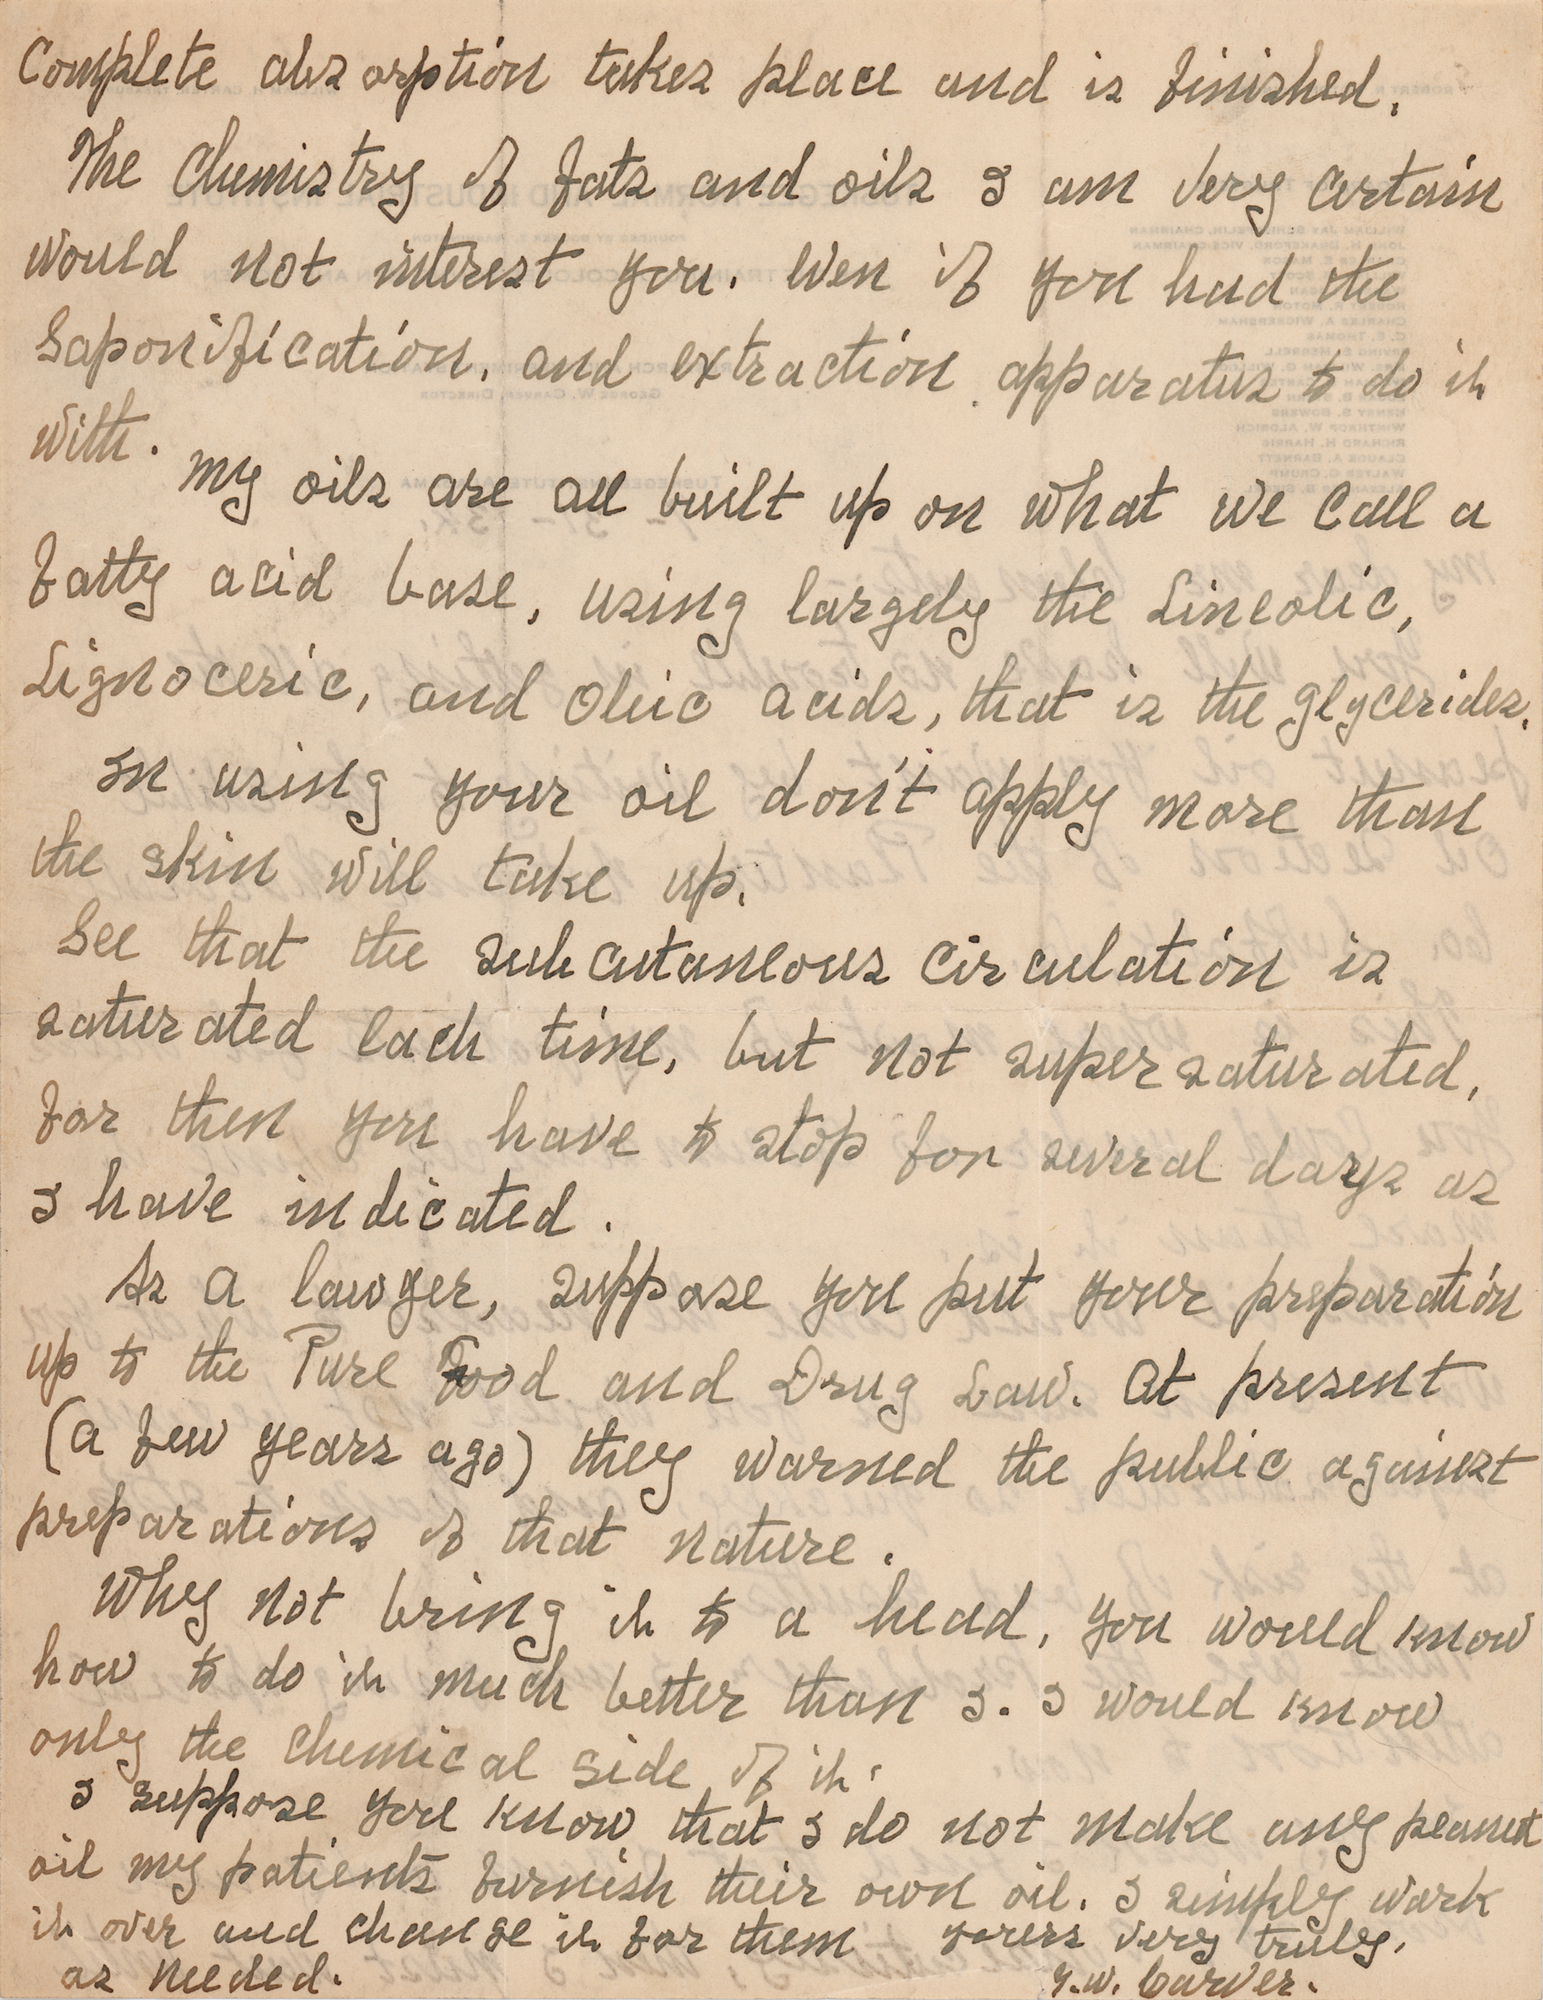 Complete absorption takes place and is finished.
The Chemistry of fats and oils I am very certain
would not interest you. Even if you had the
Saponification, and extraction apparatus to do it
with.
My oils are all built up on what we call a
fatty acid base, using largely the Lineolic,
Lignoceric, and Oleic acids, that is the glycerides.
In using your oil don't apply more than
the skin will take up.
See that the subcutaneous circulation is
saturated each time, but not super saturated,
for then you have to stop for several days as
I have indicated.
As a lawyer, suppose you put your preparation
up to the Pure Food and Drug Law. At present
(a few years ago) they warned the public against
preparations of that nature.
Why not bring it to a head, you would know
how to do it much better than I. I would know
only the chemical side of it.
I suppose you know that I do not make any peanut
oil my patients furnish their own oil. I simply work
it over and change it for them yours very truly,
as needed. G.W. Carver.